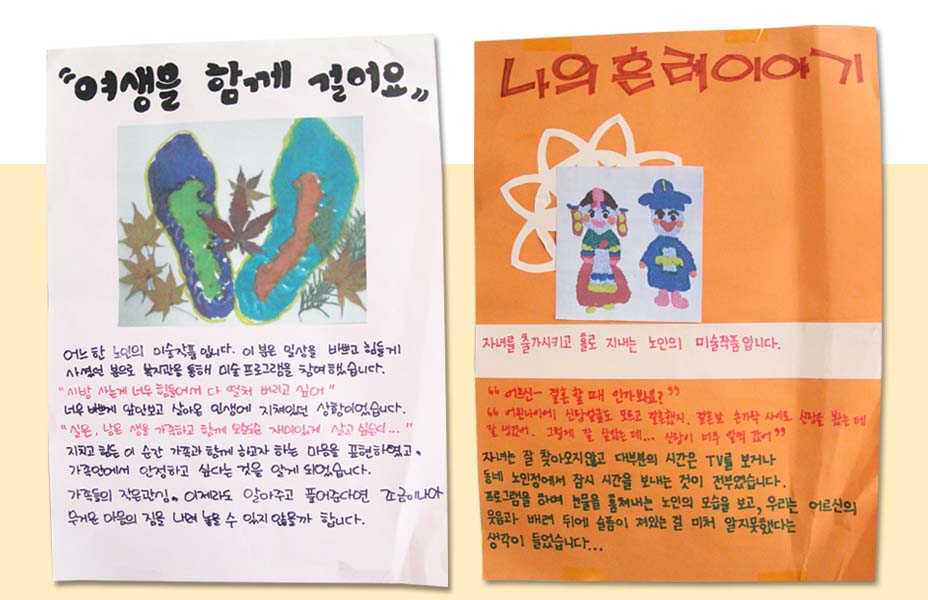 "여생을 함께 걸어요"
어느한 노인의 미술작품 입니다. 이 분은 일상을 바쁘고 힘들게
사셨던 분으로 복지관을 통해 미술 프로그램을 참여했습니다.
"시방 사는게 너무 힘들어서 다 떨쳐 버리고 싶어"
너무 바쁘게 앞만보고 살아온 인생에 지쳐있던 상황이었습니다.
"실은, 남은 생을 가족하고 함께 오순도순 재미있게 살고 싶은디..."
지치고 힘든 이 순간 가족과 함께 하고자 하는 마음을 표현하였고,
가족안에서 안정하고 싶다는 것을 알게 되었습니다.
가족들의 작은관심. 이제라도 알아주고 풀어준다면 조금이나마
무거운 마음의 짐을 내려 놓을 수 있지 않을까 합니다.
나의 혼례이야기
자녀를 출가시키고 홀로 지내는 노인의 미술작품 입니다.
"어르신~ 결혼 할 때 인가봐요?"
"어린나이에 신랑얼굴도 모르고 결혼했지. 결혼날 손가락 사이로 신랑을 봤는데
잘 생겼어. 그렇게 잘 살았는데... 신랑이 너무 일찍 갔어"
자녀는 잘 찾아오지않고 대부분의 시간은 TV를 보거나
동네 노인정에서 잠시 시간을 보내는 것이 전부였습니다.
프로그램을 하며 눈물을 훔쳐내는 노인의 모습을 보고, 우리는 어르신의
웃음과 배려 뒤에 슬픔이 젖있는 걸 미처 알지못했다는
생각이 들었습니다...